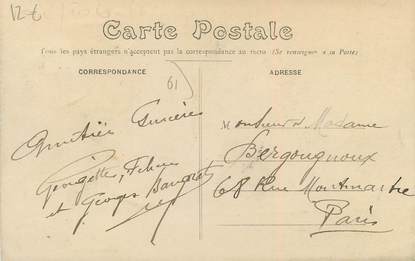 12 €
Carte Postale
Tous les pays étrangers n'acceptent pas la correspondance au recto (Se renseigner à la Poste)
CORRESPONDANCE
ADRESSE
61
Amitiés Sincères
Georgette,
et Georges
Monsieur et Madame
Bergougnoux
68 Rue Montmartre
Paris